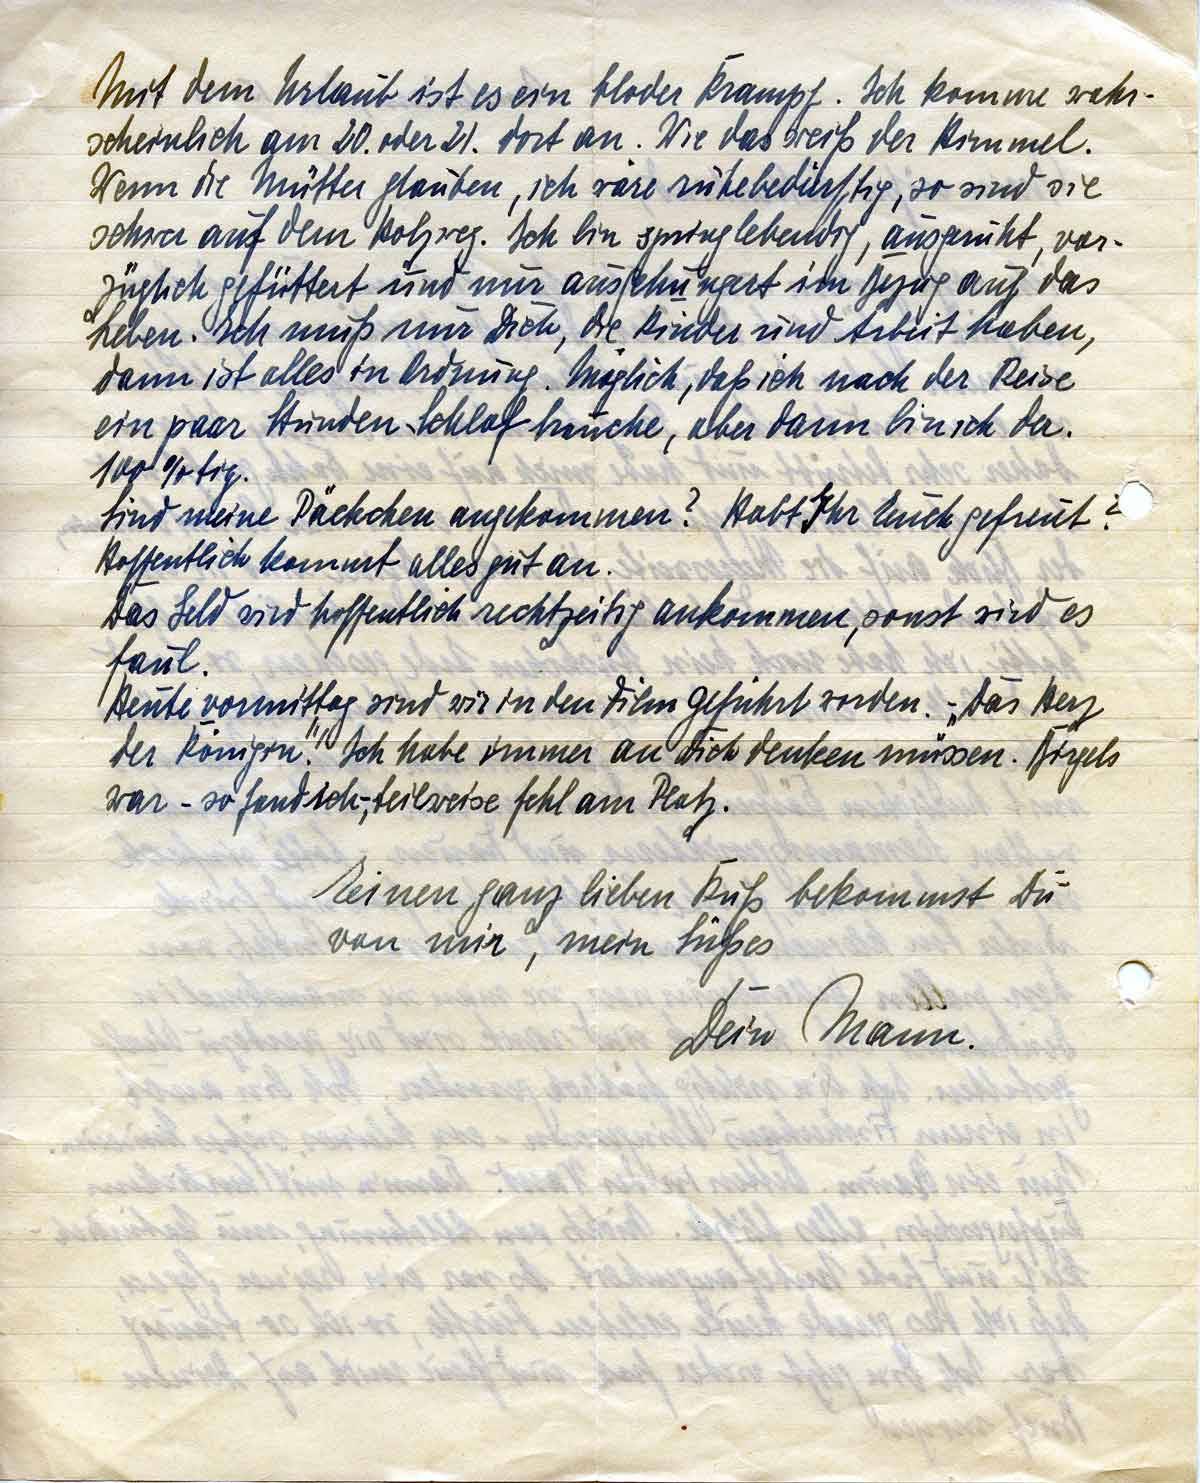 Mit dem Urlaub ist es ein bloder Krampf. Ich komme wahr-
scheinlich am 20. oder 21. dort an. Wie das weiß der Himmel.
Wenn die Mütter glauben, ich wäre ruhebedürftig, so sind sie
schwer auf dem Holzweg. Ich bin springlebendig, ausgeruht, vor-
züglich gefüttert und nur ausgehungert in Bezug auf das
Leben. Ich muß nur Dich, die Kinder und Arbeit haben,
dann ist alles in Ordnung. Möglich, daß ich nach der Reise
ein paar Stunden Schlaf brauche, aber dann bin ich da.
100 %tig.
Sind meine Päckchen angekommen? Habt Ihr Euch gefreut?
Hoffentlich kommt alles gut an.
Das Geld wird hoffentlich rechtzeitig ankommen, sonst wird es
faul.
Heute vormittag sind wir in den Film geführt worden. - „Das Herz
der Königin." Ich habe immer an Dich denken müssen. Birgels
war - so fand ich -, teilweise fehl am Platz.
Einen ganz lieben Kuß bekommst Du
von mir, mein Süßes
Dein Mann.